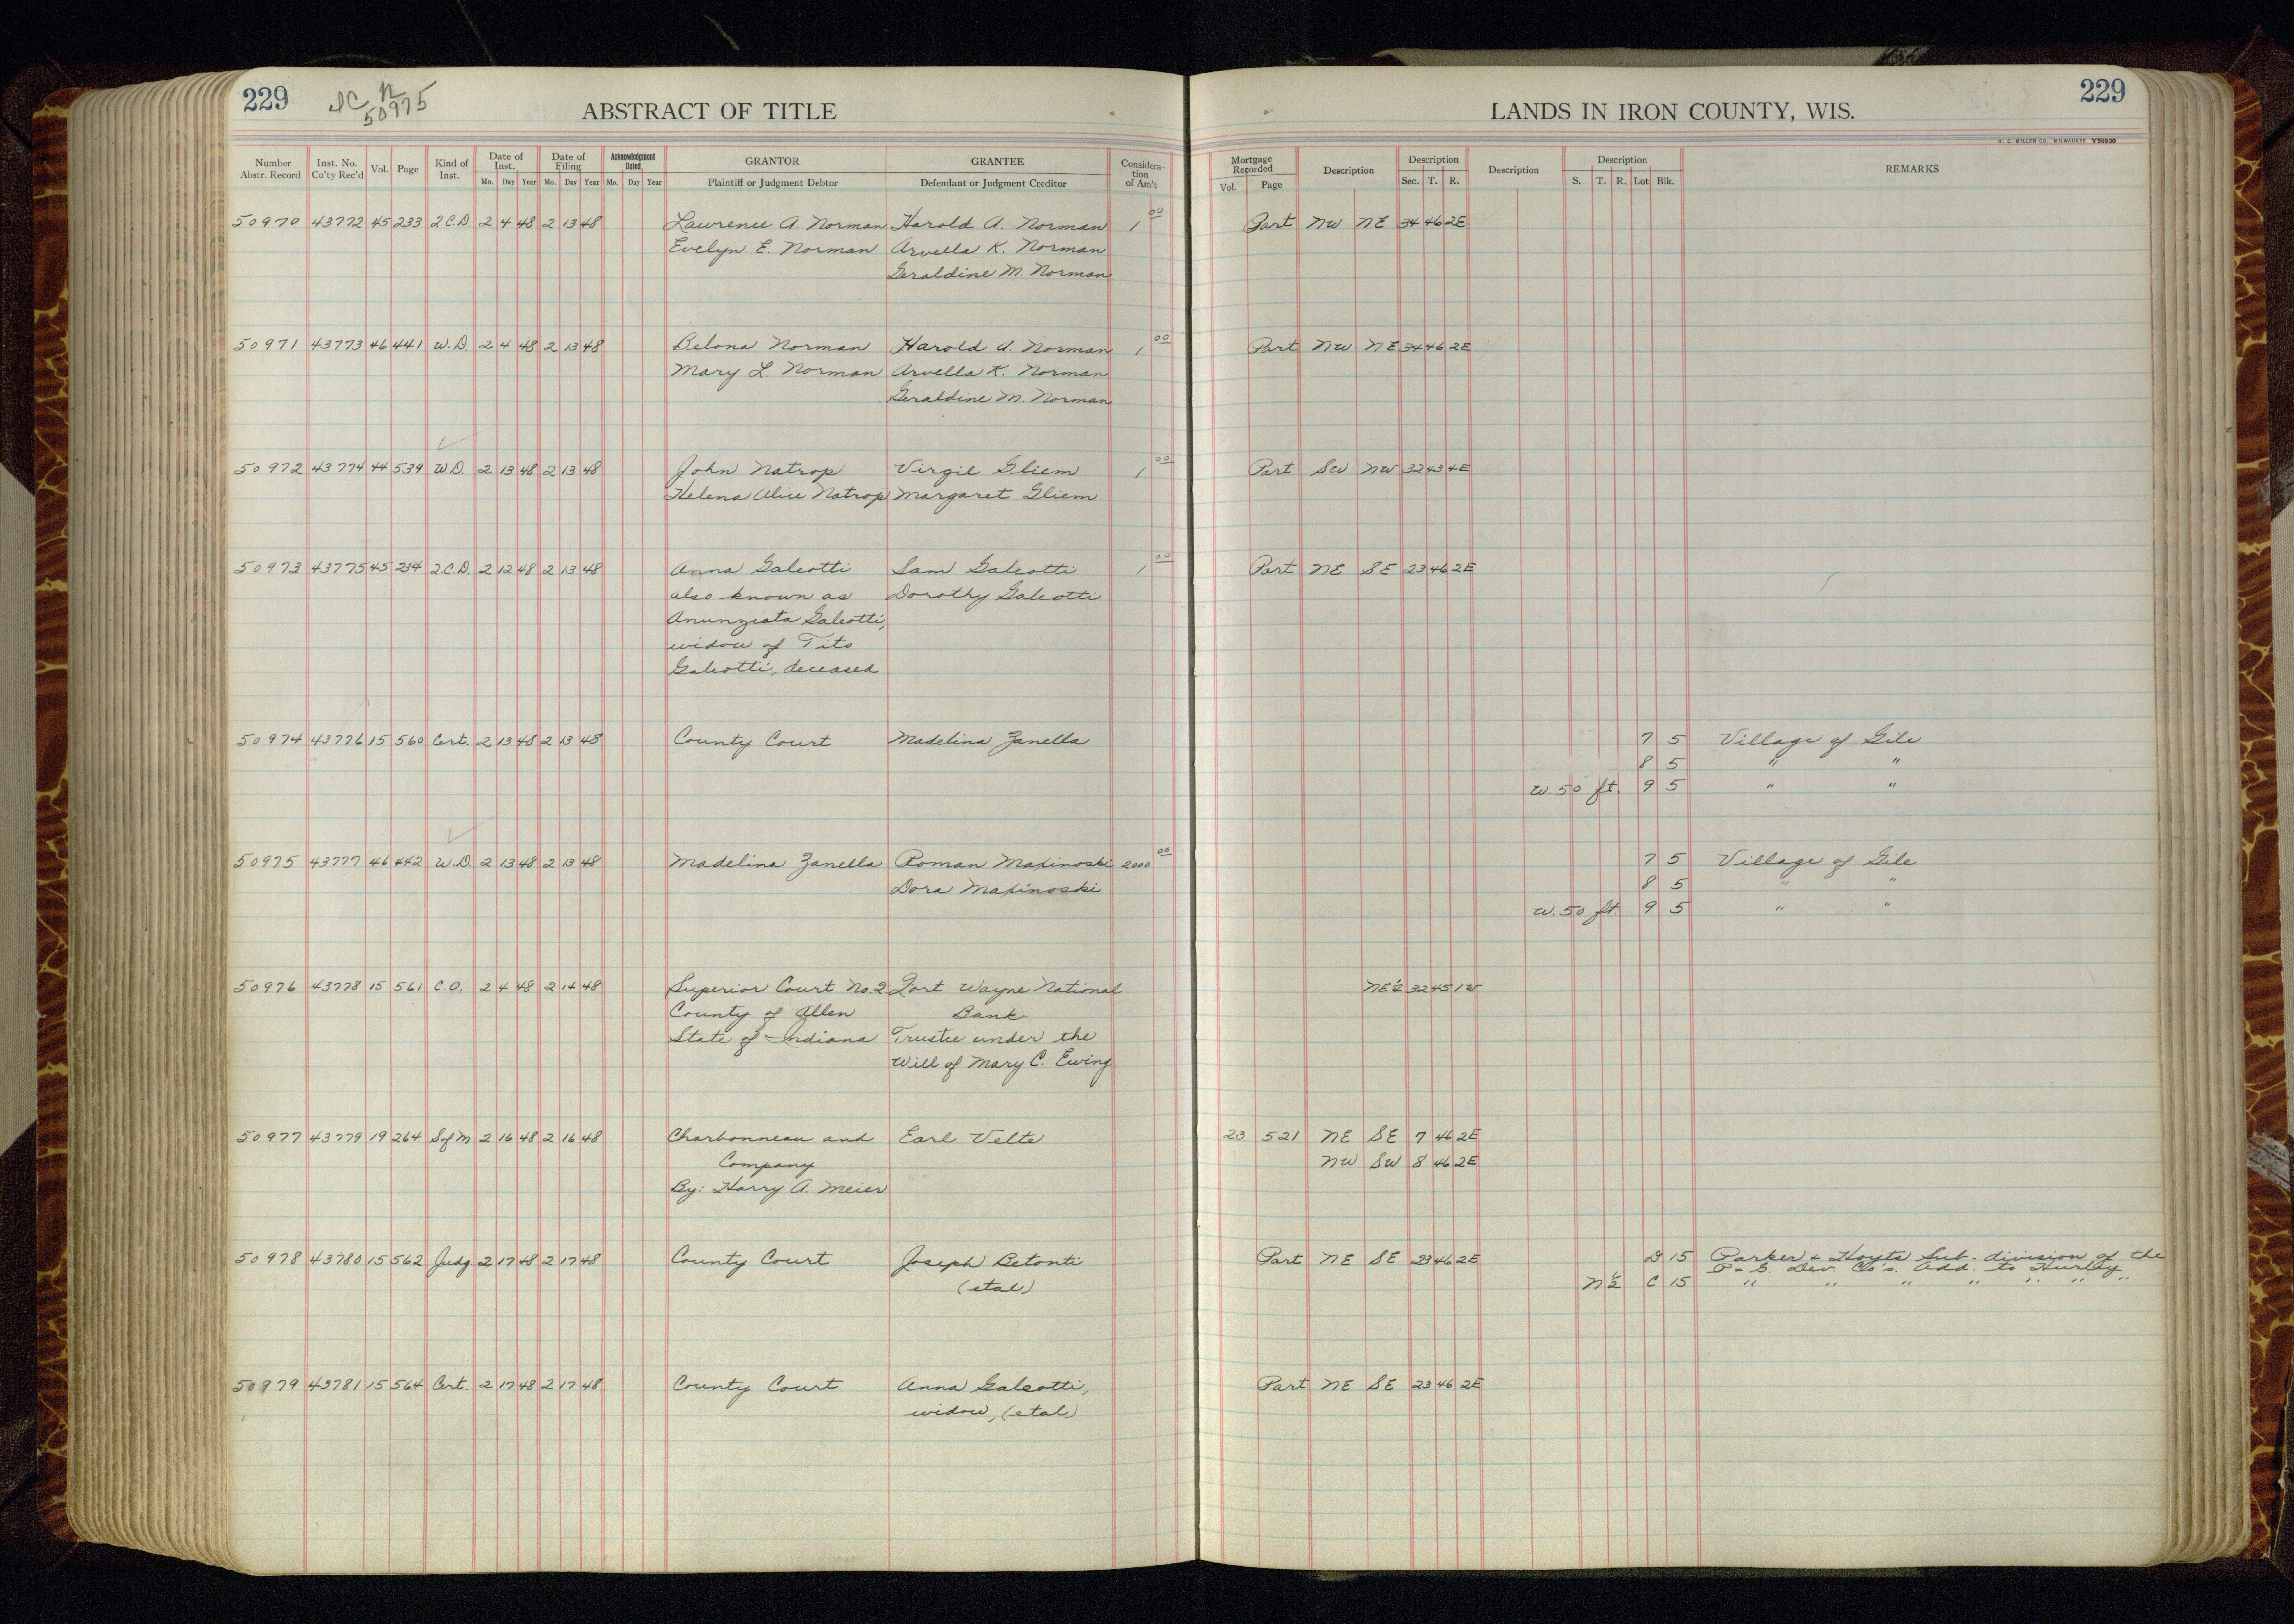 229
50975
ABSTRACT OF TITLE
LANDS IN IRON COUNTY, WIS.
229
H. C. MILLER CO., MILWAUKEE Y50930
Number Abstr. Record Inst. No. Co'ty Rec'd Vol. Page Kind of Inst. Date of Inst. Mo. Day Year Date of Filing Mo. Day Year Acknowledgment Dated Mo. Day Year GRANTOR Plaintiff or Judgment Debtor GRANTEE Defendant or Judgment Creditor Considera-tion of Am't Mortgage Recorded Vol. Page Description Description Sec. T. R. Description Description S. T. R. Lot Blk. REMARKS
50970 43772 45 233 2.C.D. 2 4 48 2 13 48 Lawrence A. Norman Harold A. Norman 1 00 Part NW NE 34 46 2E
Evelyn E. Norman Arvella K. Norman
Geraldine M. Norman
50971 43773 46 441 W.D. 2 4 48 2 13 48 Belona Norman Harold A. Norman 1 00 Part NW NE 34 46 2E
Mary L. Norman Arvella K. Norman
Geraldine M. Norman
50972 43774 44 539 W.D. 2 13 48 2 13 48 John Natrop Virgil Gliem 1 00 Part SW NW 32 43 4E
Helena Alice Natrop Margaret Gliem
50973 43775 45 234 2.C.D. 2 12 48 2 13 48 Anna Galeotti Sam Galeotti 1 00 Part NE SE 23 46 2E
also known as Dorothy Galeotti
Anunziata Galeotti,
widow of Tito
Galeotti, deceased
50974 43776 15 560 Cert. 2 13 48 2 13 48 County Court Madelina Zanella 7 5 Village of Gile
8 5 " "
W. 50 ft. 9 5 " "
50975 43777 46 442 W.D. 2 13 48 2 13 48 Madelina Zanella Roman Maxinoski 2000 00 7 5 Village of Gile
Dora Maxinoski 8 5 " "
W. 50 ft. 9 5 " "
50976 43778 15 561 C.O. 2 4 48 2 14 48 Superior Court No. 2 Fort Wayne National NE½ 32 45 1W
County of Allen Bank
State of Indiana Trustee under the
Will of Mary C. Ewing
50977 43779 19 264 S of M 2 16 48 2 16 48 Charbonneau and Earl Velte 23 521 NE SE 7 46 2E
Company NW SW 8 46 2E
By: Harry A. Meier
50978 43780 15 562 Judg. 2 17 48 2 17 48 County Court Joseph Betonti Part NE SE 23 46 2E D 15 Parker & Hoyts Sub-division of the
P & G. Dev. Co's. Add. to Hurley
(etal) N½ C 15 " " " " " " "
50979 43781 15 564 Cert. 2 17 48 2 17 48 County Court Anna Galeotti, Part NE SE 23 46 2E
widow, (etal)